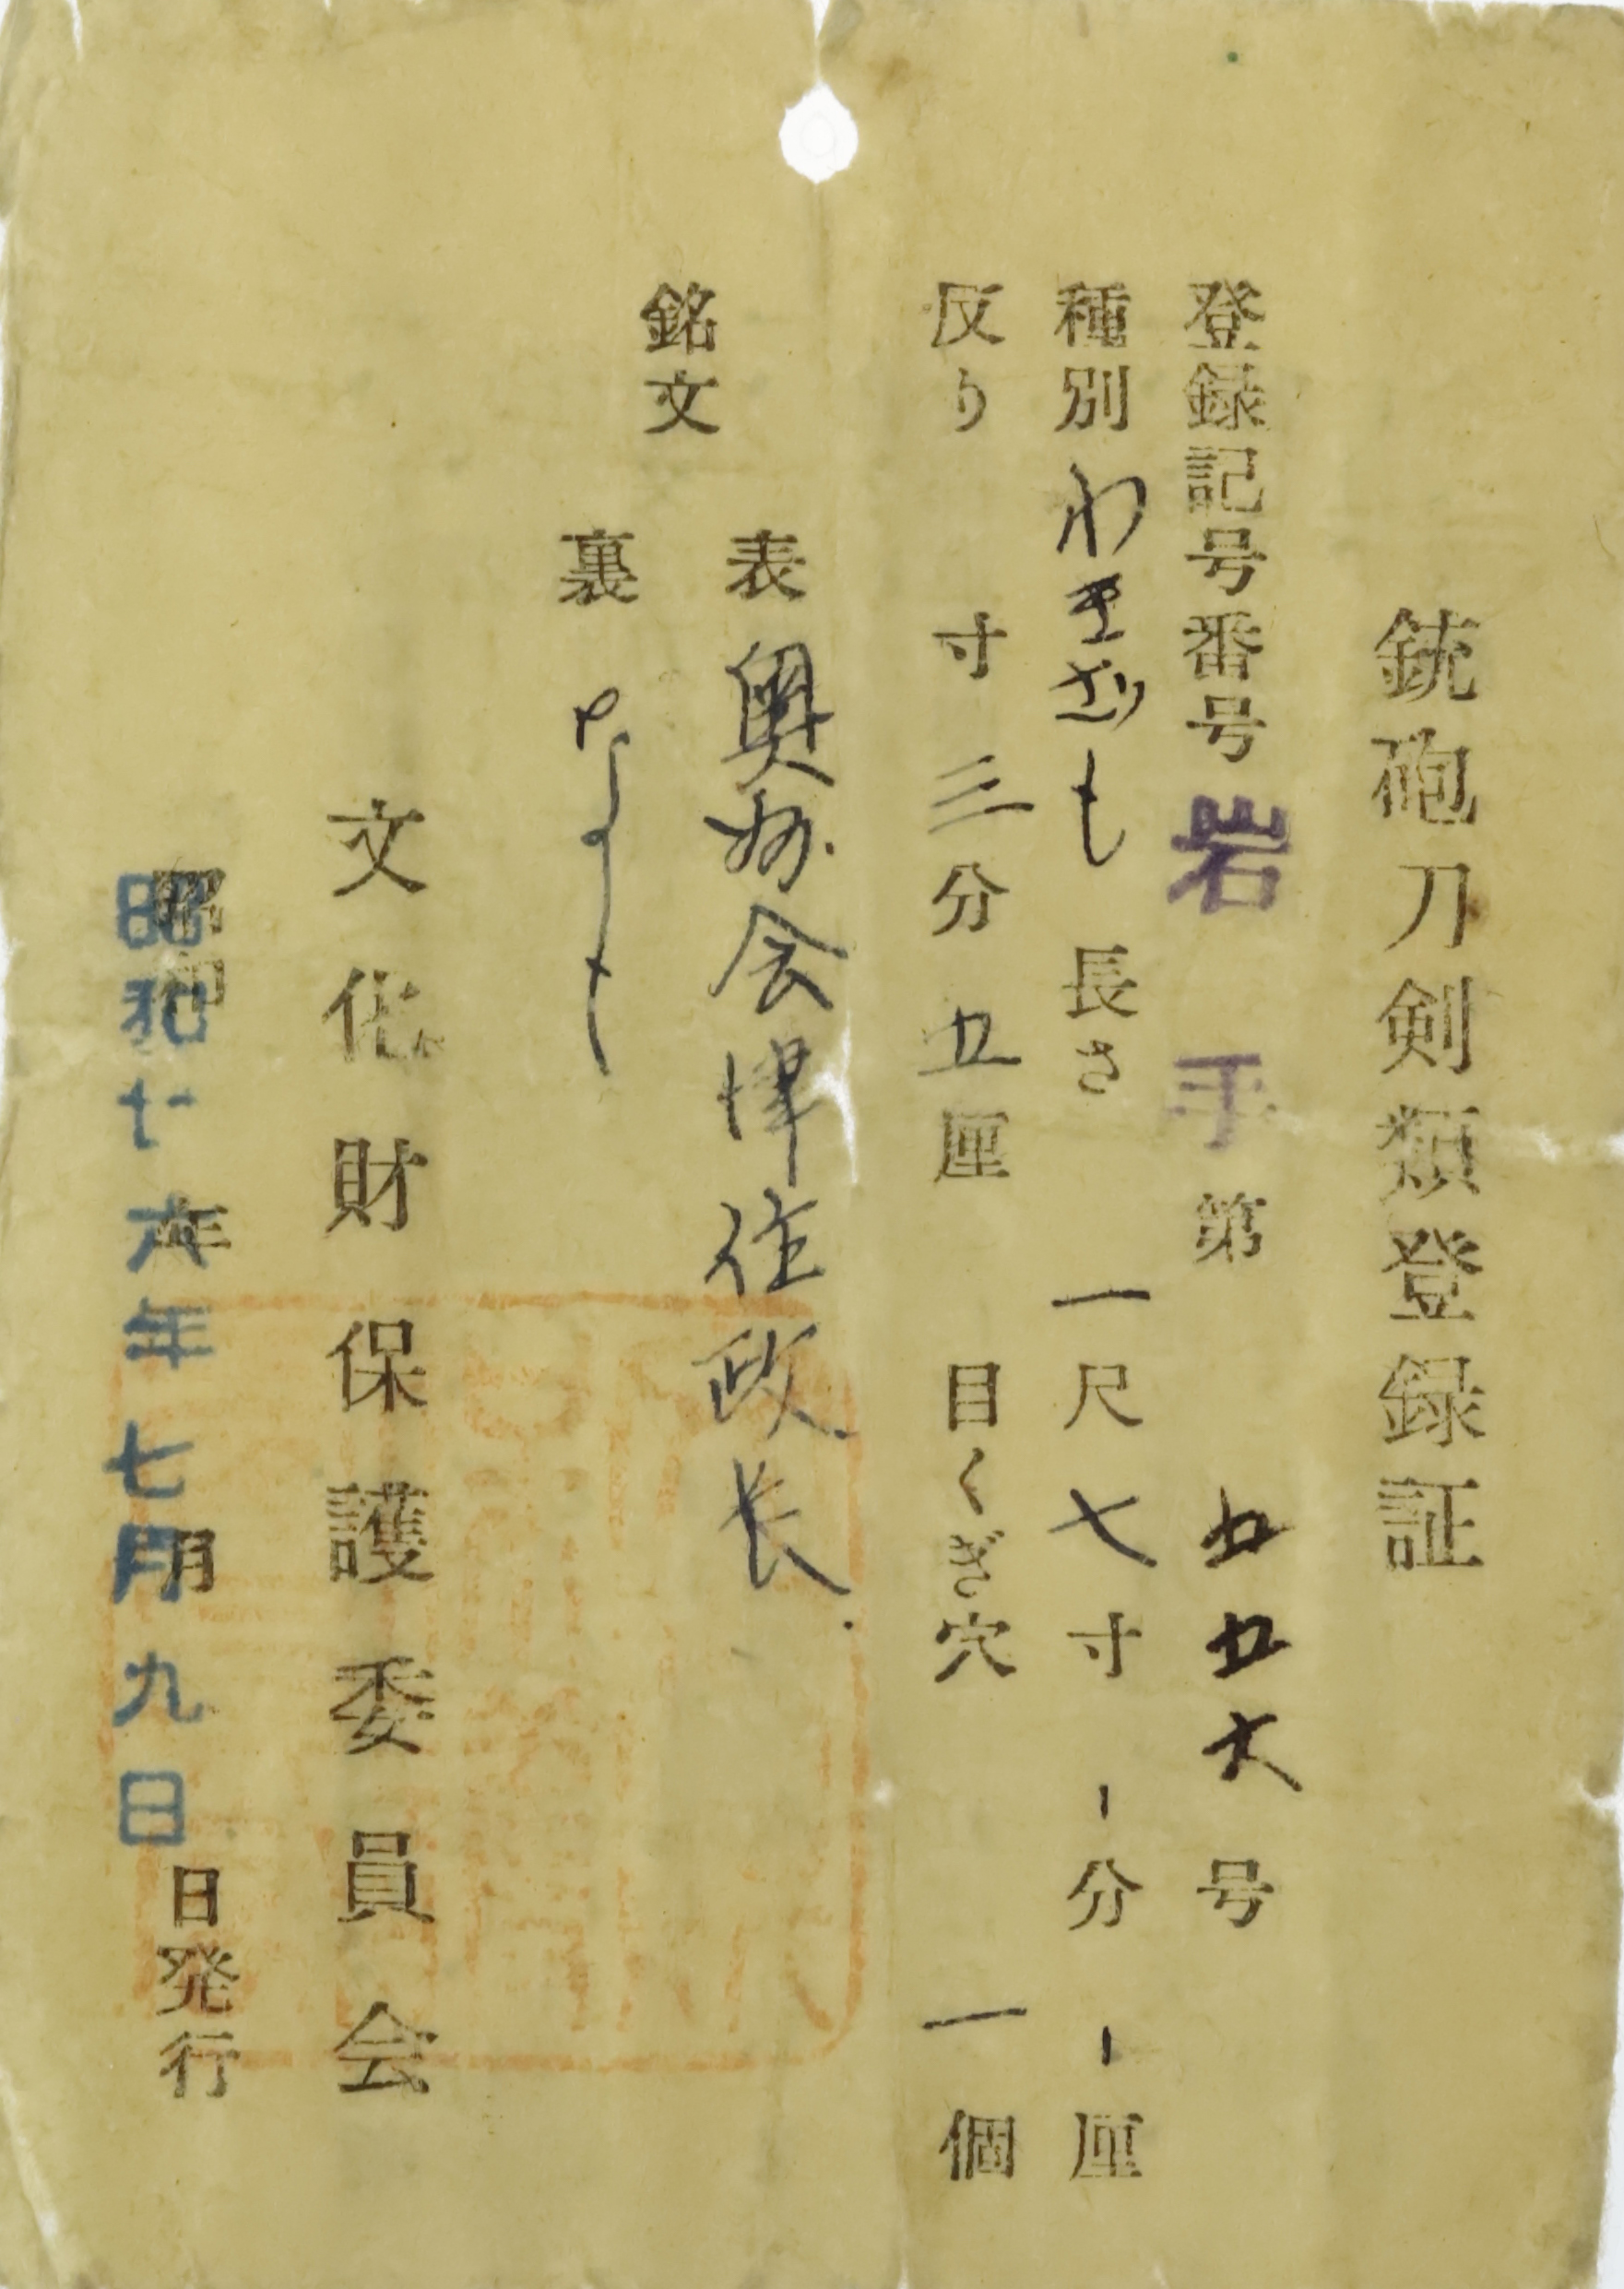 銃砲刀剣類登録証
登録記号番号 岩手 第 五五六 号
種別 わきざし 長さ 一尺 七寸 ー分 ー厘
反り 寸 三分 五厘 目くぎ穴 一個
銘文
表 奥州会津住政长
裏
文化財保護委員会
昭和 年 月 日発行
昭和廿六年七月九日